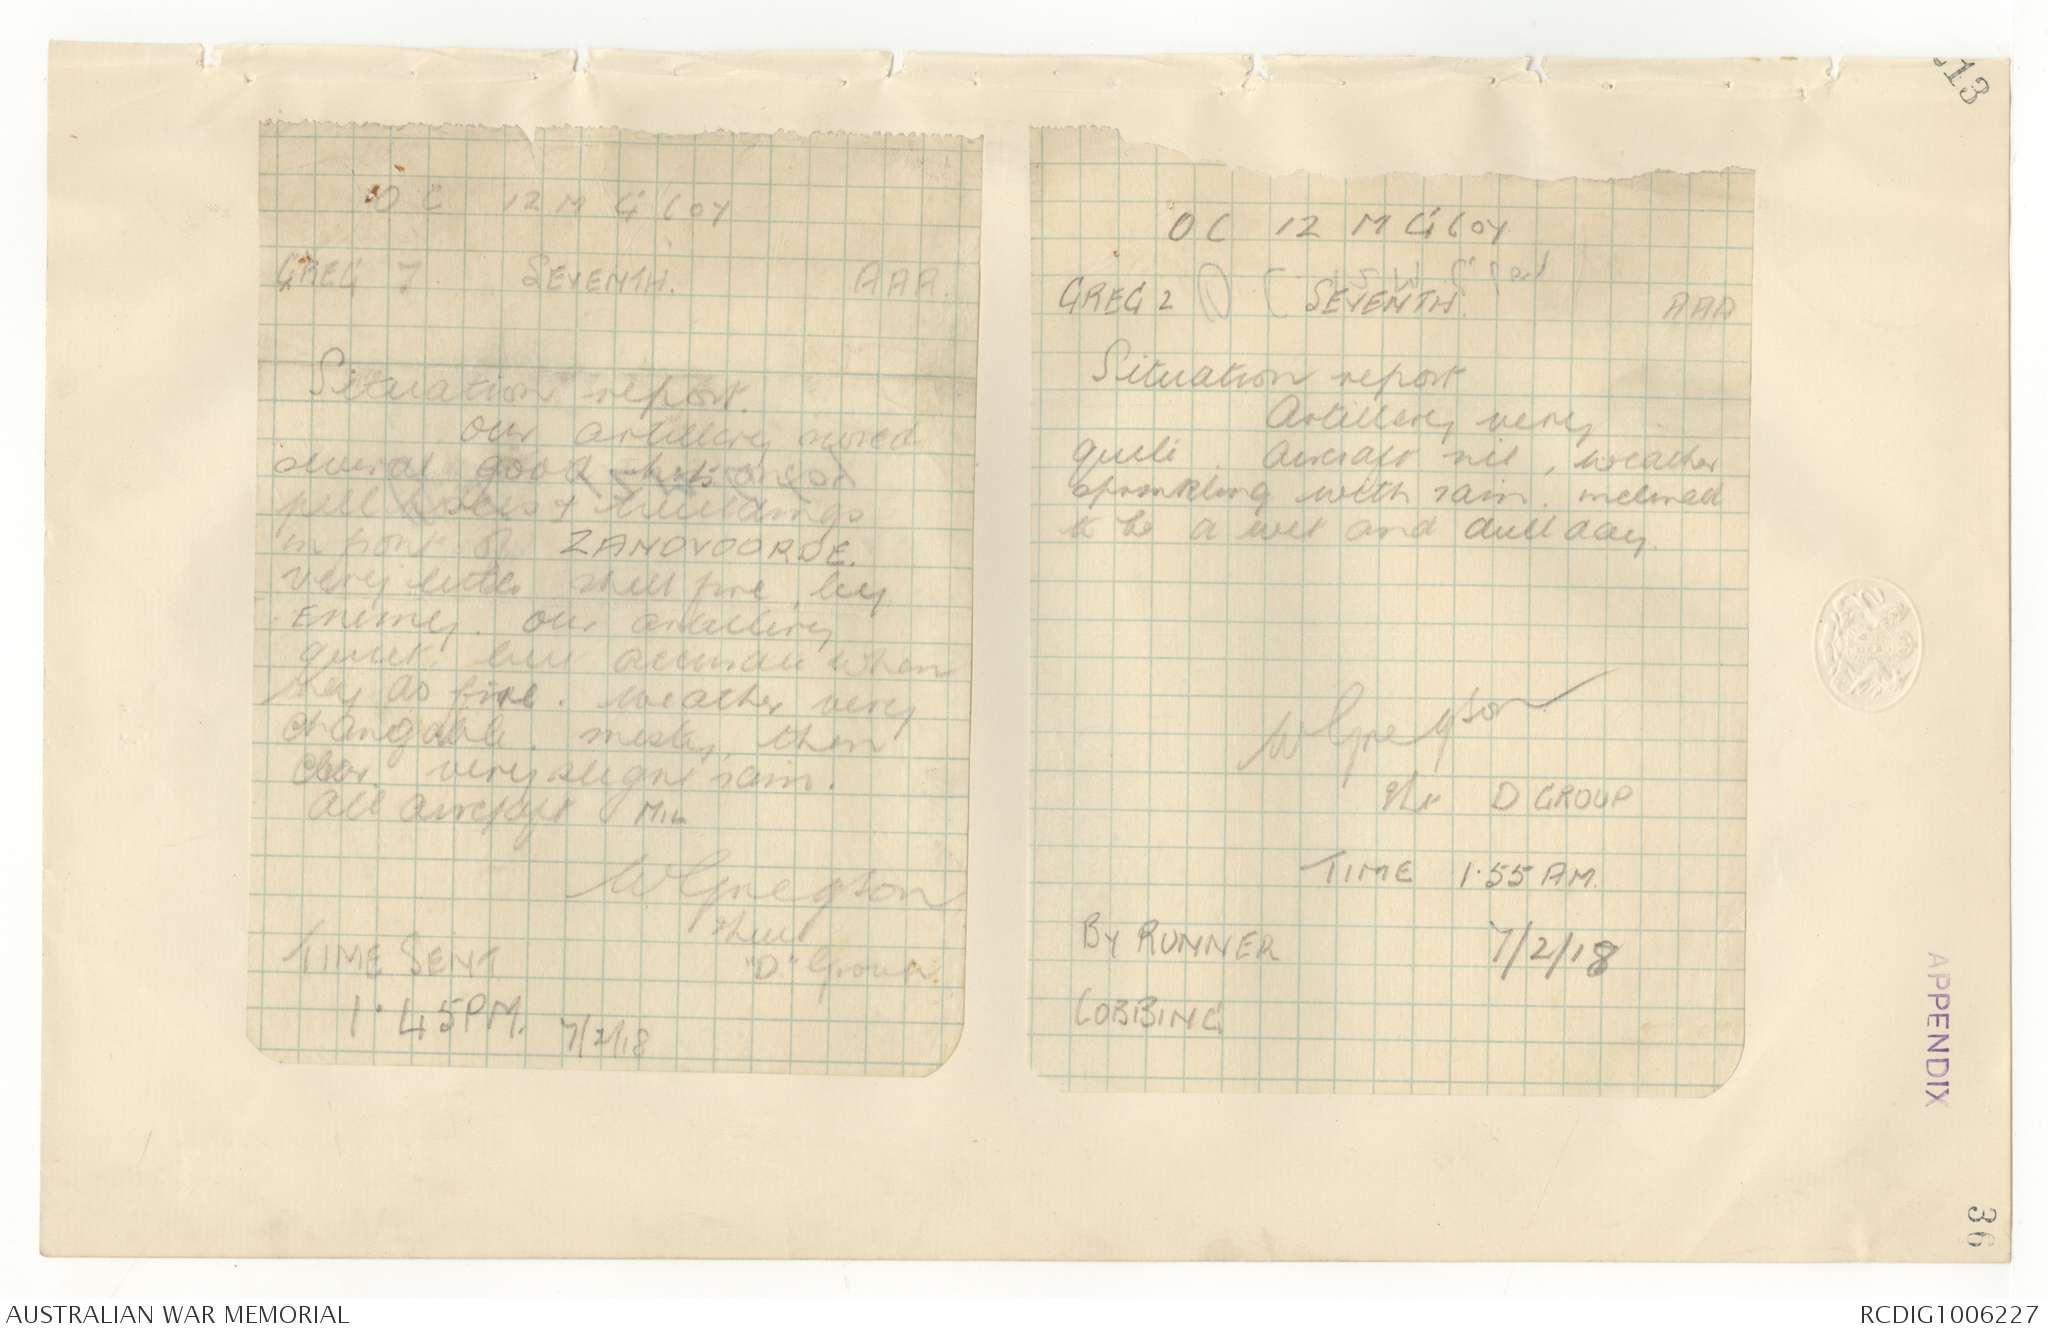 OC 12 M G Coy
GREG 7. SEVENTH. AAA.
Situation report.
Our artillery scored
several good hits on
pill boxes & buildings
in front of ZANDVOORDE.
very little shell fire by
Enemy. Our artillery
quiet, but accurate when
they do fire. Weather very
changable. misty, then
clear very slight rain.
All aircraft
W Gregson
"D" Group.
TIME SENT
1.45 PM. 7/2/18
OC 12 M G Coy
GREG 2 SEVENTH. AAA
Situation report
Artillery very
queit. Aircraft nil, weather
sprinkling with rain. inclined
to be a wet and dull day.
W Gregson
D GROUP
TIME 1.55 AM.
BY RUNNER 7/2/18
COBBING
13
APPENDIX
36
AUSTRALIAN WAR MEMORIAL
RCDIG1006227